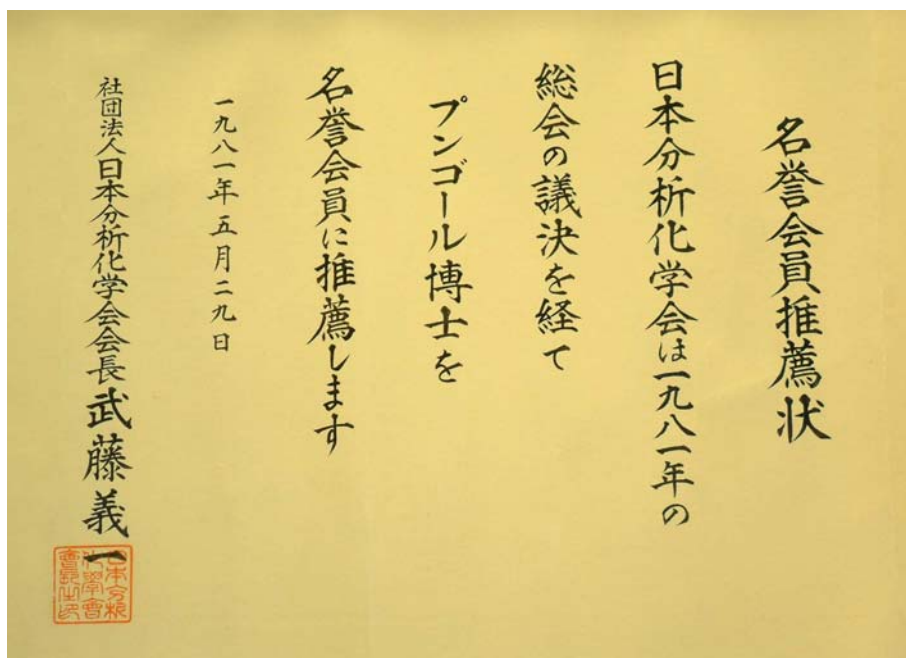 名誉会員推薦状
日本分析化学会は一九八一年の
総会の議決を経て
プンゴール博士を
名誉会員に推薦します
一九八一年五月二九日
社団法人日本分析化学会会長武藤義一
日本分析
化學會
會長之印